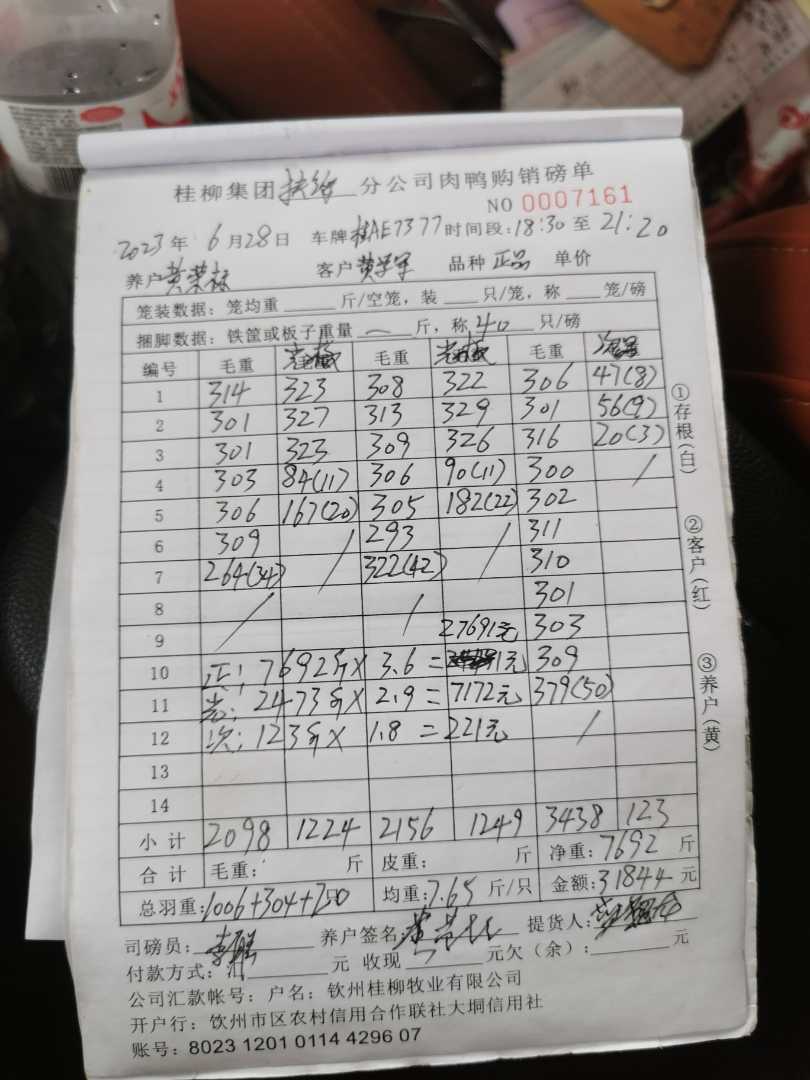 桂柳集团扶绥分公司肉鸭购销磅单
NO 0007161
2023年 6月28日 车牌桂AE7377时间段:18:30至21:20
养户黄荣标 客户 品种正品 单价
笼装数据:笼均重 斤/空笼,装 只/笼,称 笼/磅
捆脚数据:铁筐或板子重量 一 斤,称40只/磅
编号 毛重 毛重 毛重
1 314 323 308 322 306 47(8)
2 301 327 313 329 301 56(9)
3 301 323 309 326 316 20(3)
4 303 84(11) 306 90(11) 300 /
5 306 167(20) 305 182(22) 302
6 309 / 293 / 311
7 264(34) 322(42) 310
8 / / 301
9 27691元 303
10 正:7692斤× 3.6 = 1元 309
11 光:2473斤× 2.9 = 7172元 379(50)
12 次:123斤× 1.8 = 221元 /
13
14
小计 2098 1224 2156 1249 3438 123
合计 毛重: 斤 皮重: 斤 净重:7692 斤
总羽重:1006+304+250 均重:7.65 斤/只 金额:31844 元
①存根(白)
②客户(红)
③养户(黄)
司磅员: 养户签名: 提货人:
付款方式:汇 元 收现 元欠(余): 元
公司汇款帐号:户名:钦州桂柳牧业有限公司
开户行:钦州市区农村信用合作联社大垌信用社
账号:8023 1201 0114 4296 07